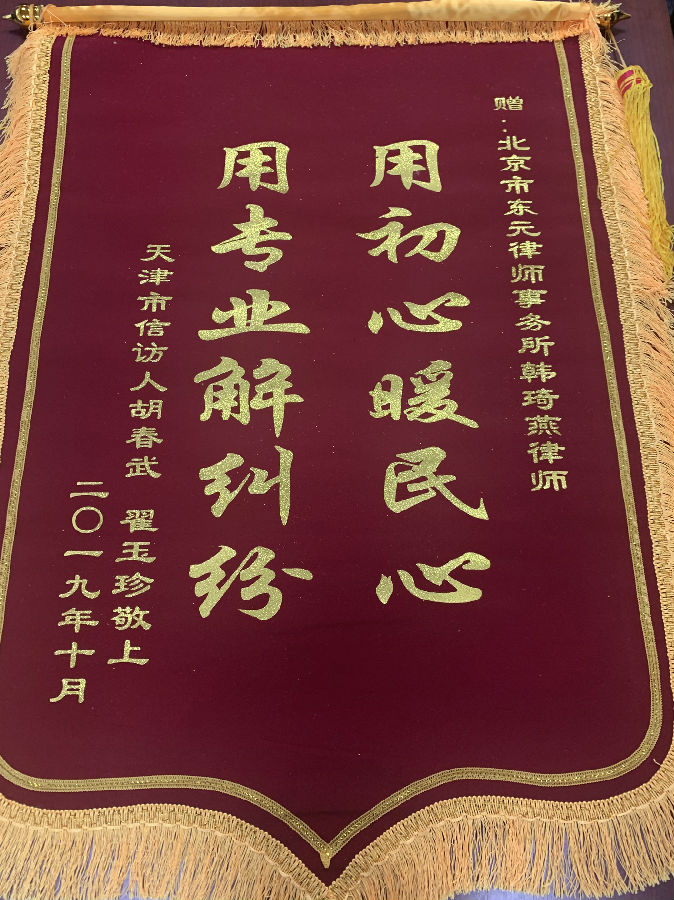 赠：北京市东元律师事务所韩琦燕律师
用初心暖民心
用专业解纠纷
天津市信访人胡春武 翟玉珍敬上
二〇一九年十月